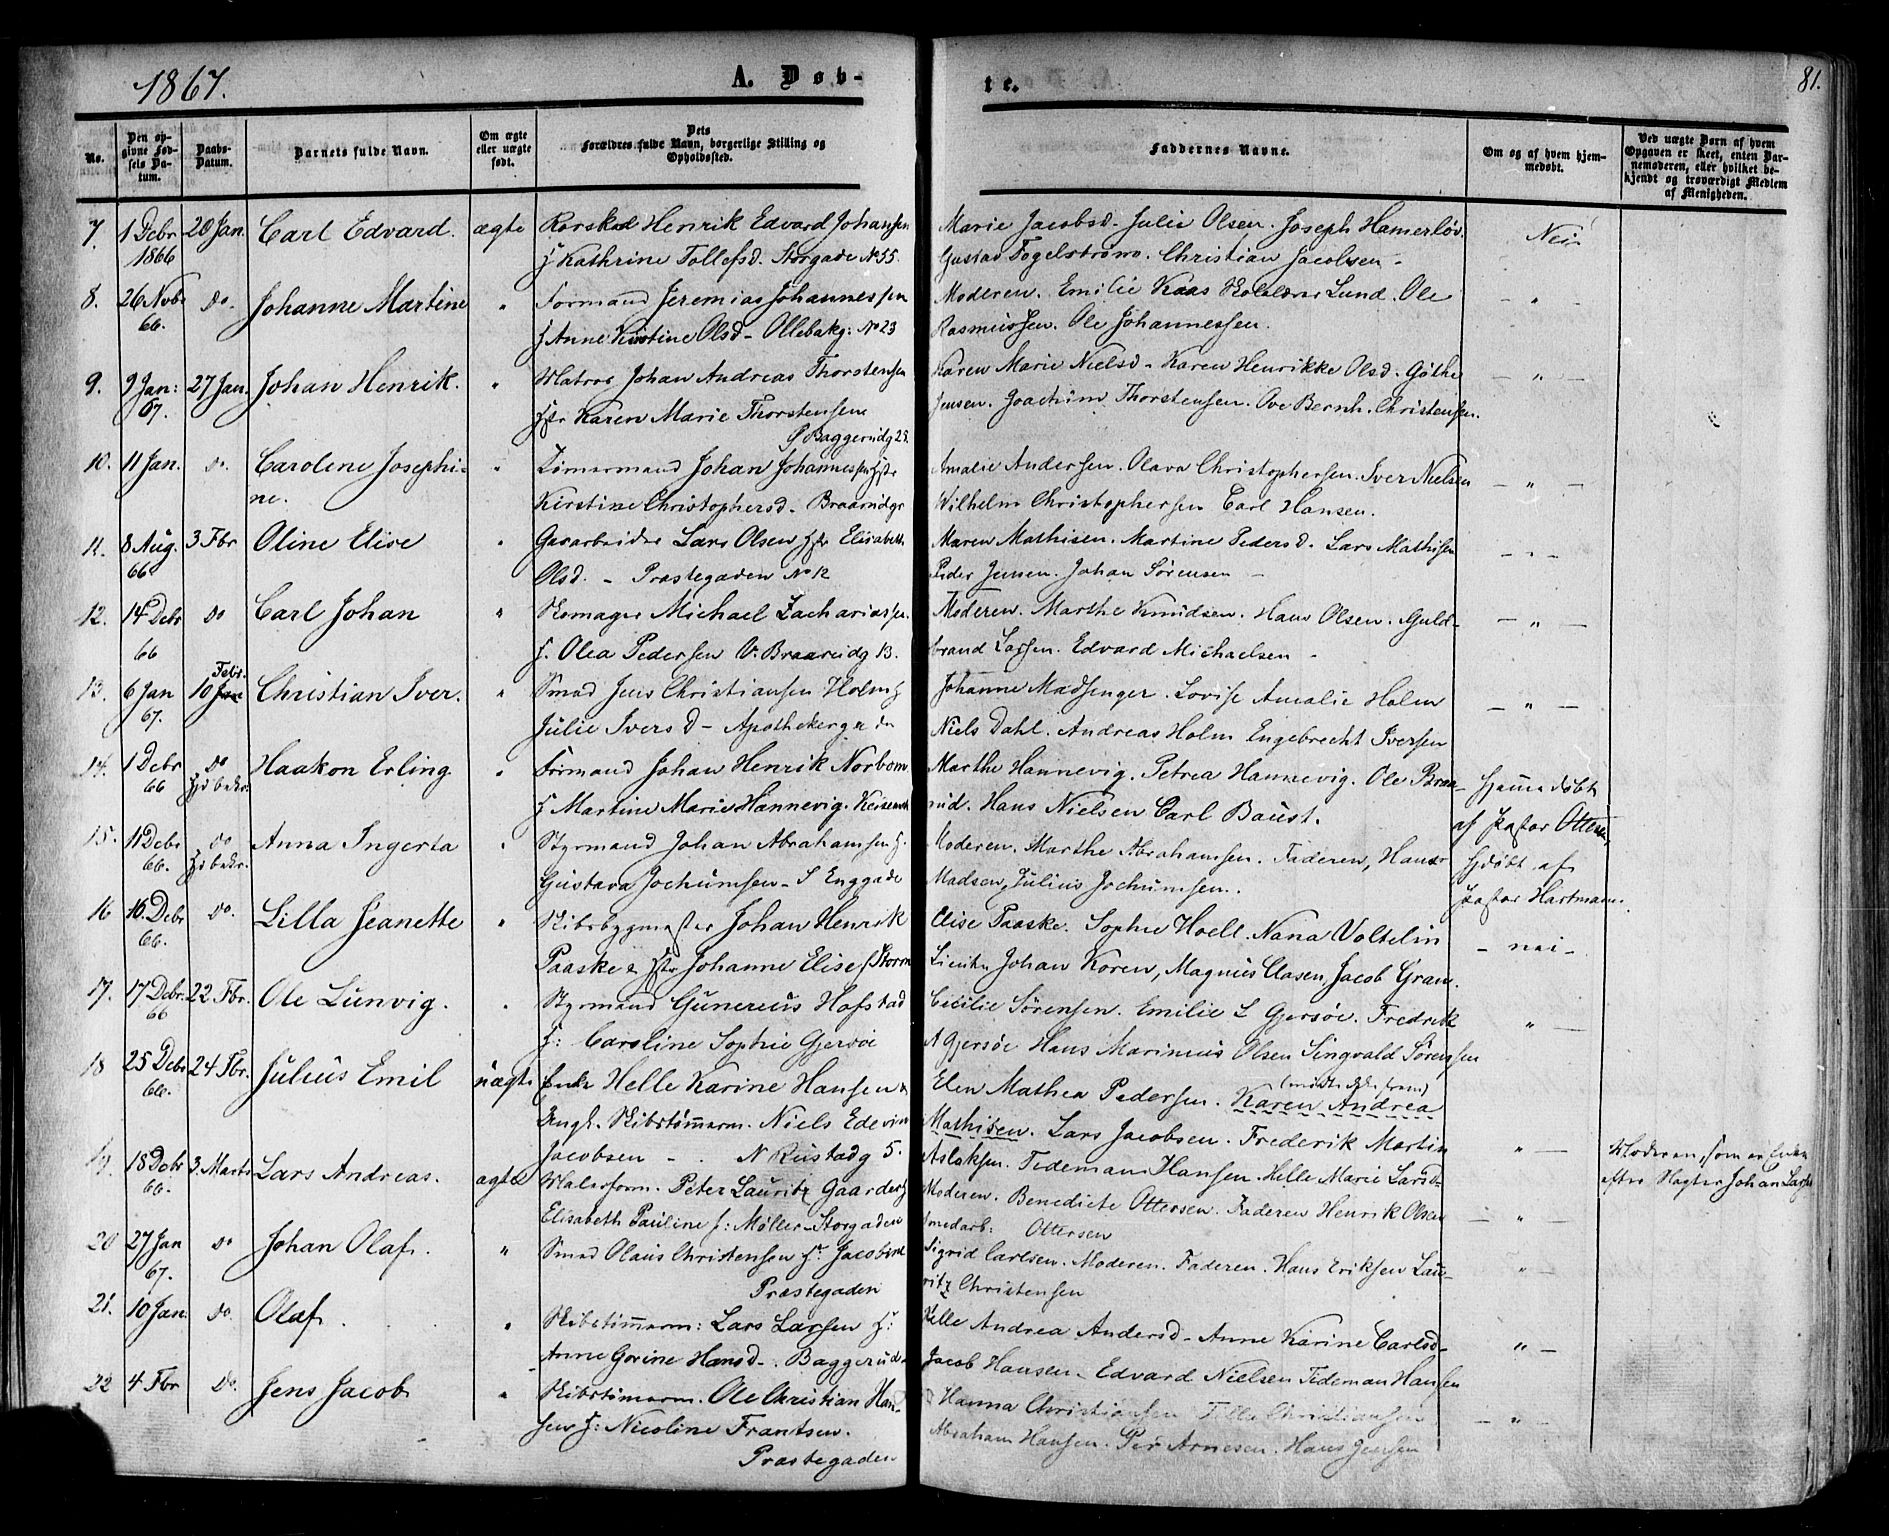 1867.
A. Døb-
te.
81.
No.
Den op-
givne Fød-
sels Da-
tum.
Daabs-
Datum.
Barnets fulde Navn.
Om ægte
eller uægte
født.
Dets
Forældres fulde Navn, borgerlige Stilling og
Opholdssted.
Faddernes Navne.
Om og af hvem hjem-
medøbt.
Ved uægte Børn af hvem
Opgaven er skeet, enten Bar-
nemoderen, eller hvilket be-
kjendt og troværdigt Medlem
af Menigheden.
7. 1 Debr 20 Jan. Carl Edvard. ægte Henrik Edvard Johansen Marie Jacobsd. Julie Olsen. Joseph Hamerløv. Nei
1866 Kathrine Tollefsd. Storgade No 55. Gustav Fogelstrøm. Christian Jacobsen -
8. 26 Novb. do. Johanne Martine " Formand Jeremias Johannessen Moderen. Emilie Kaas Lund. Ole - " -
66. Anne Kirstine Olsd - Ollebakg: No 23 Rasmussen. Ole Johannessen.
9. 9 Jan: 27 Jan. Johan Henrik. " Matros Johan Andreas Thorstensen Karen Marie Nielsd - Karen Henrikke Olsd. Gøthe - " -
67. Karen Marie Thorstensen Jensen. Joachim Thorstensen. Ove Bernh. Christensen.
Ø Baggerudg 25.
10. 11 Jan. do. Caroline Josephi- " Tømermand Johan Johannessen Amalie Andersen. Olava Christophersen. Iver Nielsen - " -
ne. Kirstine Christophersd. Braarudgr Wilhelm Christophersen Carl Hansen.
11. 8 Aug. 3 Fbr Oline Elise " Gasarbeider Lars Olsen Elisabeth Maren Mathisen. Martine Pedersd. Lars Mathisen - " -
66 Olsd. - Præstegaden No 12 Peder Jensen. Johan Sørensen -
12. 14 Debr do Carl Johan " Skomager Michael Zachariassen. Moderen. Marthe Knudsen. Hans Olsen. Guld- - " -
66 Olea Pedersen V. Braarudg 13. brand Larsen. Edvard Michaelsen -
13. 6 Jan 10 Febr. Christian Iver. " Smed Jens Christiansen Holm Johanne Madsen Lovise Amalie Holm - " -
67. Julie Iversd - Apothekerg Niels Dahl. Andreas Holm Engebrecht Iversen
14. 1 Debr do Haakon Erling " Formand Johan Henrik Norbom Marthe Hannevig. Petrea Hannevig. Ole Braa- Hjemmedøbt
66 Martine Marie Hannevig. rud. Hans Nielsen Carl Baust. af Pastor Ottesen
15. 11 Debr do Anna Ingerta " Styrmand Johan Abrahamsen Moderen. Marthe Abrahamsen. Faderen, Hans Hjdøbt af
66. Gustava Jochumsen - S Enggade Madsen, Julius Jochumsen. Pastor Hartmann.
16 16 Debr do. Lilla Jeanette " Skibsbygmester Johan Henrik Elise Paaske. Sophie Hoell. Nana Voltelin - nei -
66. Paaske & Johanne Elise f Storm Johan Koren, Magnus Clasen, Jacob Gram.
17. 17 Debr. 22 Fbr. Ole Lunvig. " Styrmand Gunereus Hofstad Cecilie Sørensen. Emilie L Gjersøe. Fredrik " -
66 Caroline Sophie Gjersøe A Gjersøe Hans Marinius Olsen Singvald Sørensen
18 25 Debr 24 Fbr. Julius Emil uægte Enke Helle Karine Hansen & Elen Mathea Pedersen. Karen Andrea
66. Ungk. Skibstømerm. Niels Edevin Mathisen. Lars Jacobsen. Frederik Martin " - Moderen, som er Enke
Jacobsen - N Rustadg 5. Aslaksen. Tideman Hansen. Helle Marie Larsd- efter Johan
19. 18 Debr 3. Marts Lars Andreas. ægte Malerform. Peter Lauritz Gaarder Moderen. Benedicte Ottersen. Faderen Henrik Olsen - " -
66. Elisabeth Pauline f: Møller - Storgaden Smedarb: Ottersen
20 27 Jan do Johan Olaf. " Smed Olaus Christensen Jacobine Sigrid Carlsen. Moderen. Faderen. Hans Eriksen Lau- " -
67. Præstegaden ritz Christensen
21. 10 Jan. do. Olaf. " Skibstømerm: Lars Larsen H: Helle Andrea Andersd - Anne Karine Carlsd- " -
Anne Gorine Hansd -. Baggerud- Jacob Hansen - Edvard Nielsen Tideman Hansen
22 4 Fbr Do. Jens Jacob " Skibstømerm. Ole Christian Han- Hanna Christiansen Christiansen - " -
sen H: Nicoline Frantsen. Abraham Hansen. Per Arnesen. Hans Jensen
Præstegaden